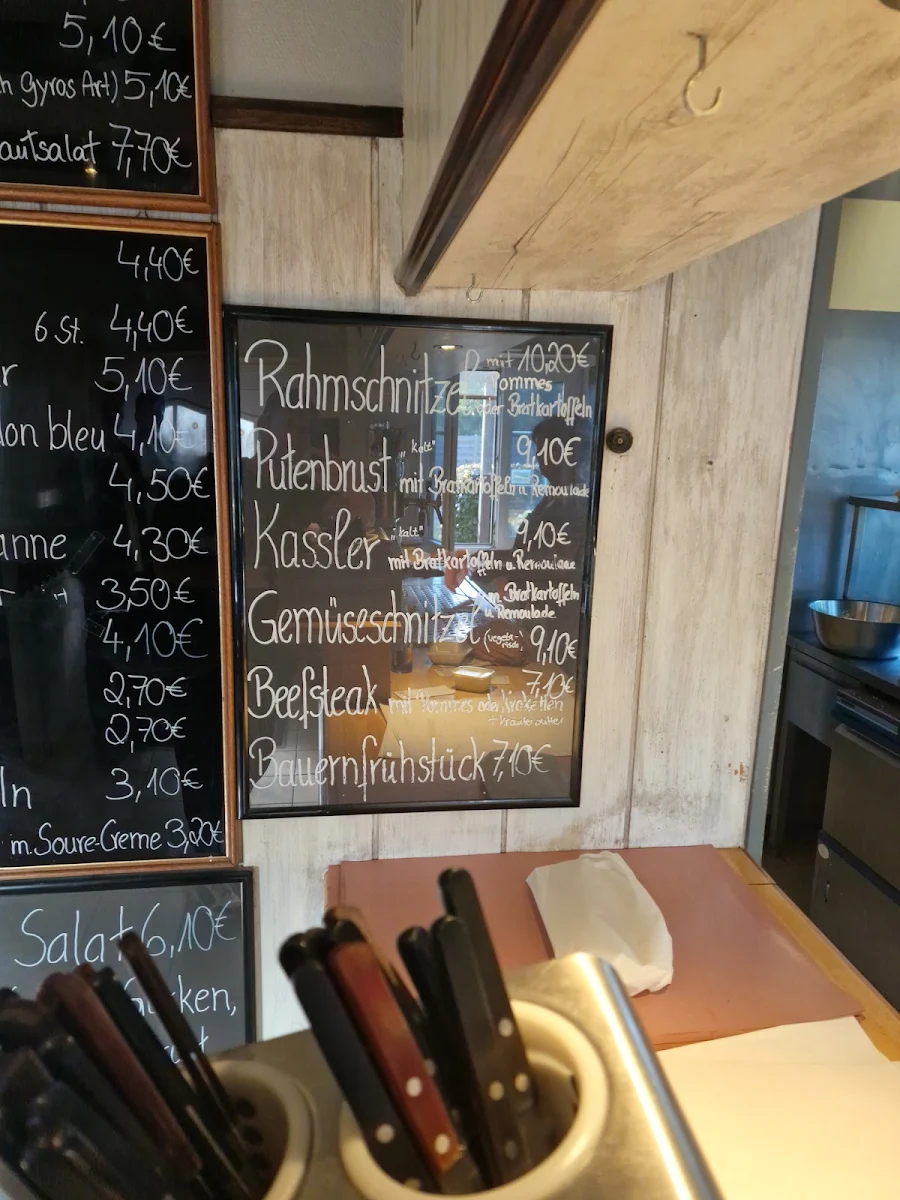 5,10€
Gyros Art) 5,10€
7,70€
4,40€
6 St. 4,40€
5,10€
bleu 4,10€
4,50€
4,30€
3,50€
4,10€
2,70€
2,70€
3,10€
m. Soure-Creme 3,20€
Salat 6,10€
Rahmschnitzel mit 10,20€
Pommes
oder Bratkartoffeln
Putenbrust "kalt" 9,10€
mit Bratkartoffeln u. Remoulade
Kassler "kalt" 9,10€
mit Bratkartoffeln u. Remoulade
m. Bratkartoffeln
u. Remoulade
Gemüseschnitzel (vegeta-
risch) 9,10€
7,10€
Beefsteak mit Pommes oder Kroketten
+ Kräuterbutter
Bauernfrühstück 7,10€